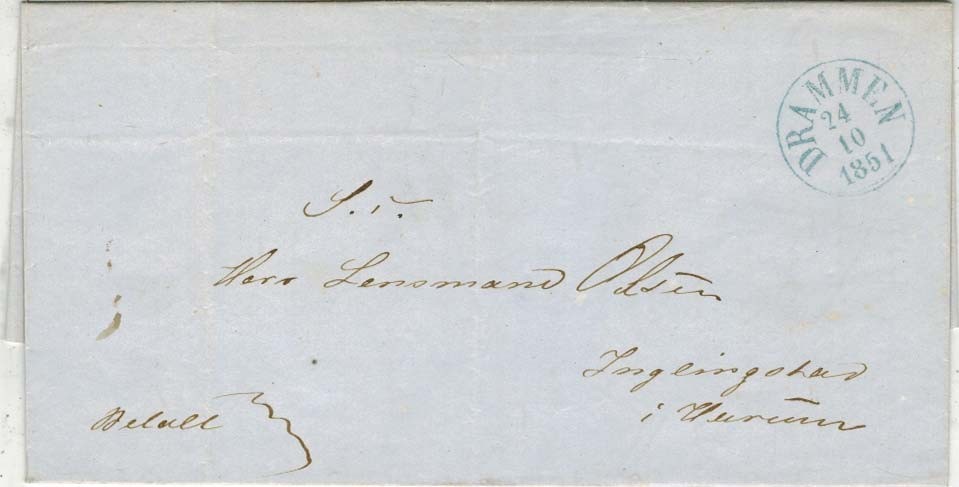 DRAMMEN
24
10
1851
S. T.
Herr Lensmand Olsen
Inglingstad
i Hurum
Betalt